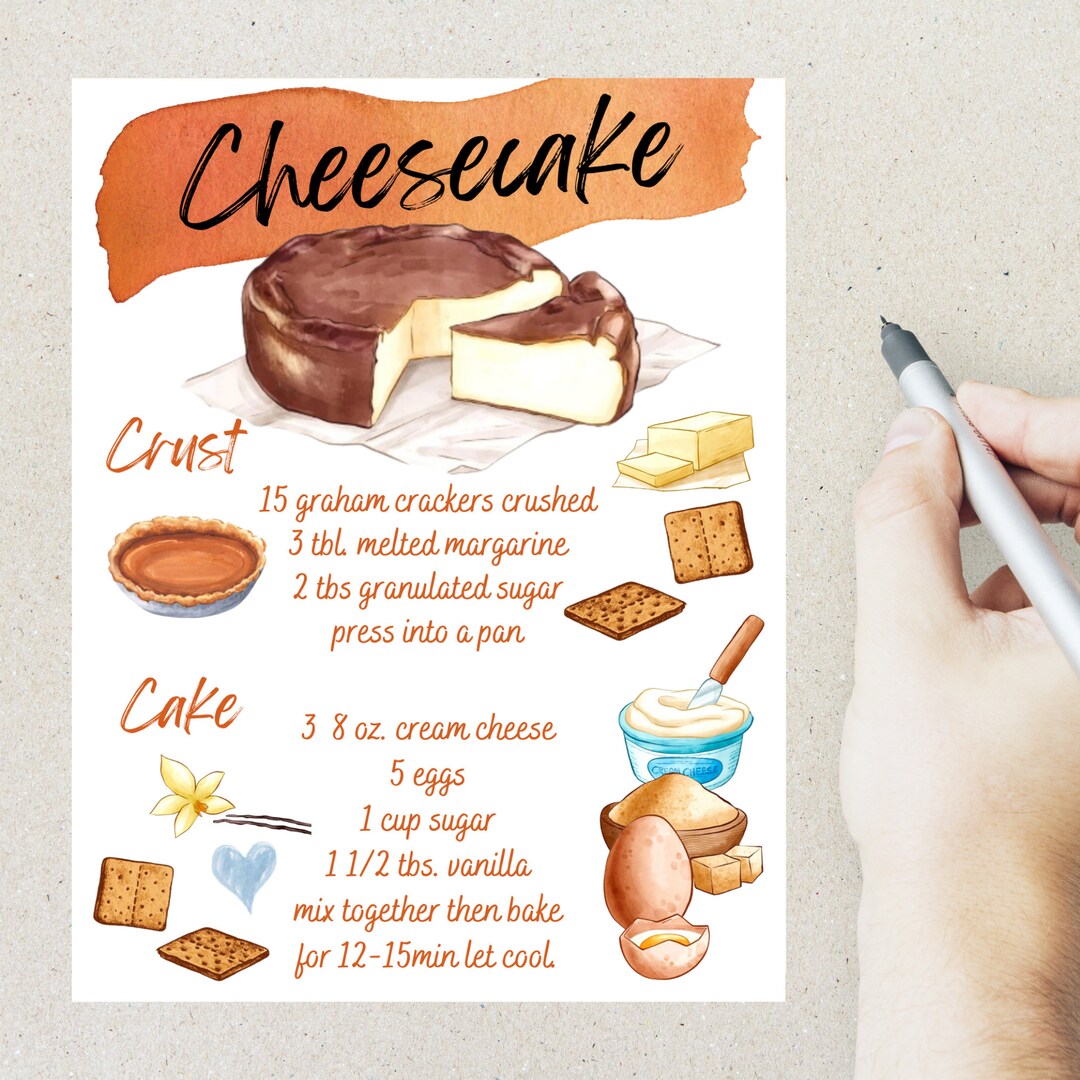 Cheesecake
Crust
15 graham crackers crushed
3 tbl. melted margarine
2 tbs granulated sugar
press into a pan
Cake
3 8 oz. cream cheese
CREAM CHEESE
5 eggs
1 cup sugar
1 1/2 tbs. vanilla
mix together then bake
for 12-15min let cool.